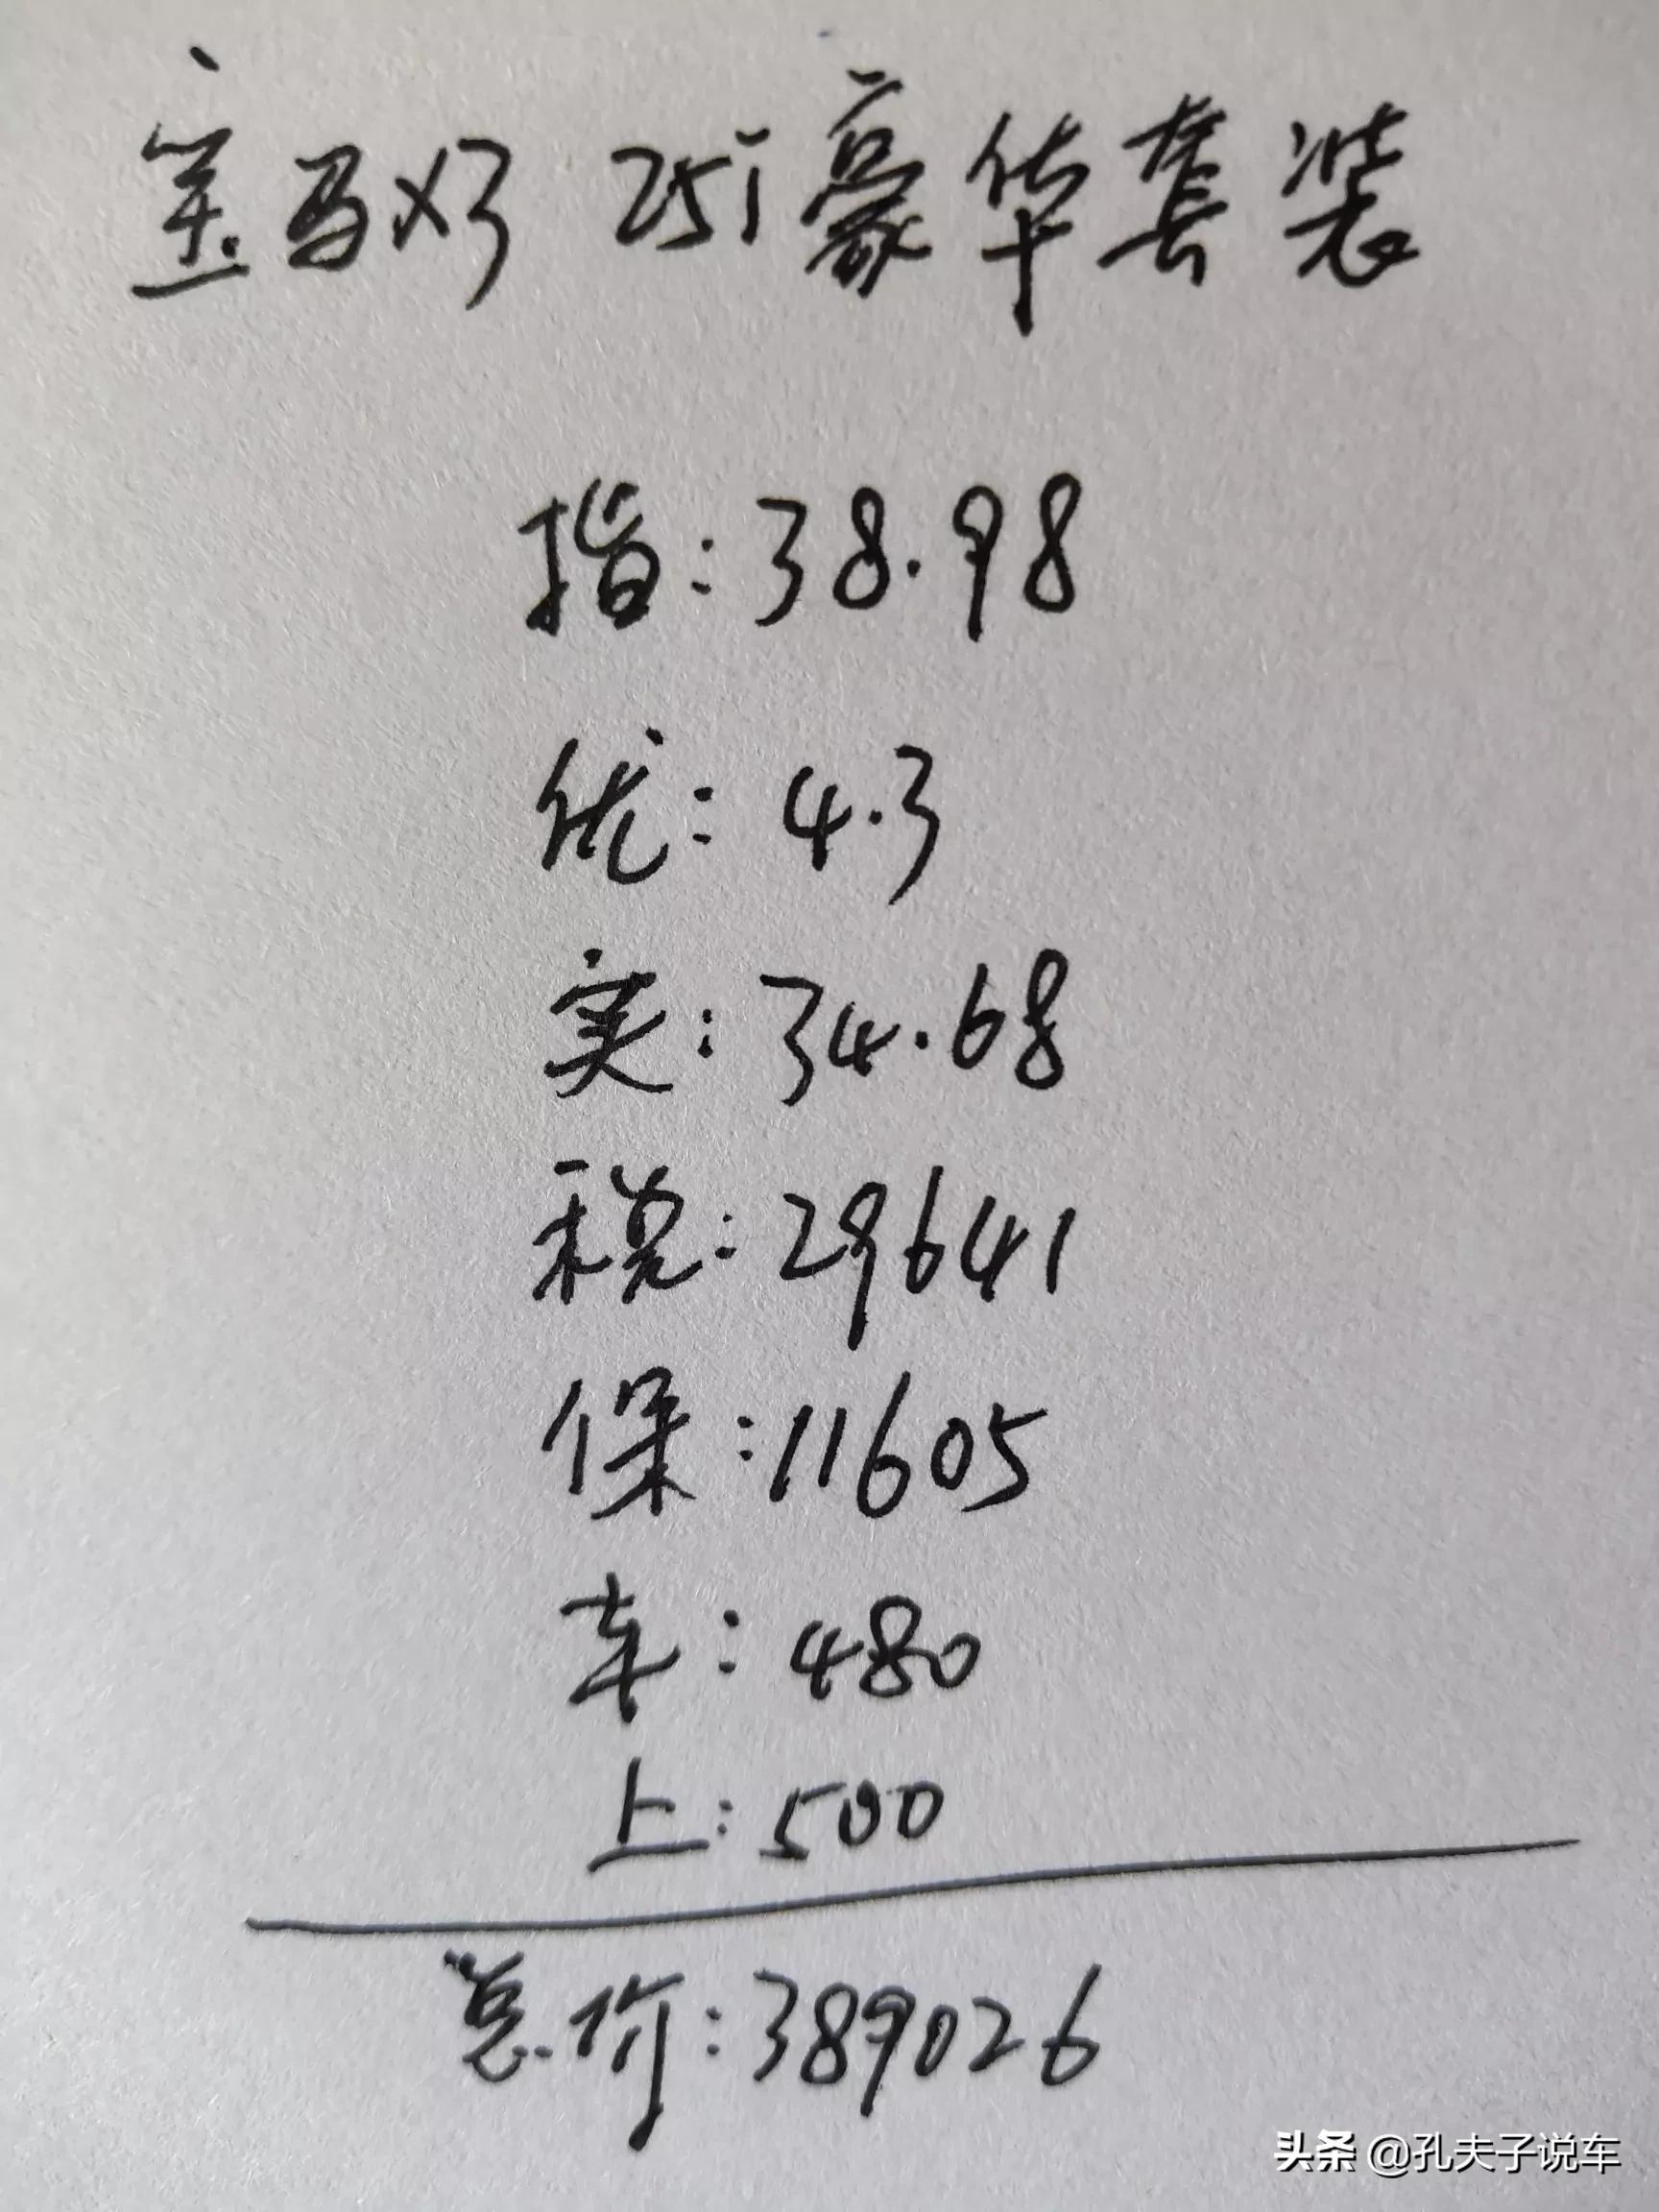 宝马X3 25i豪华套装
指:38.98
优:4.3
实:34.68
税:29641
保:11605
车:480
上:500
总价:389026
头条 @孔夫子说车